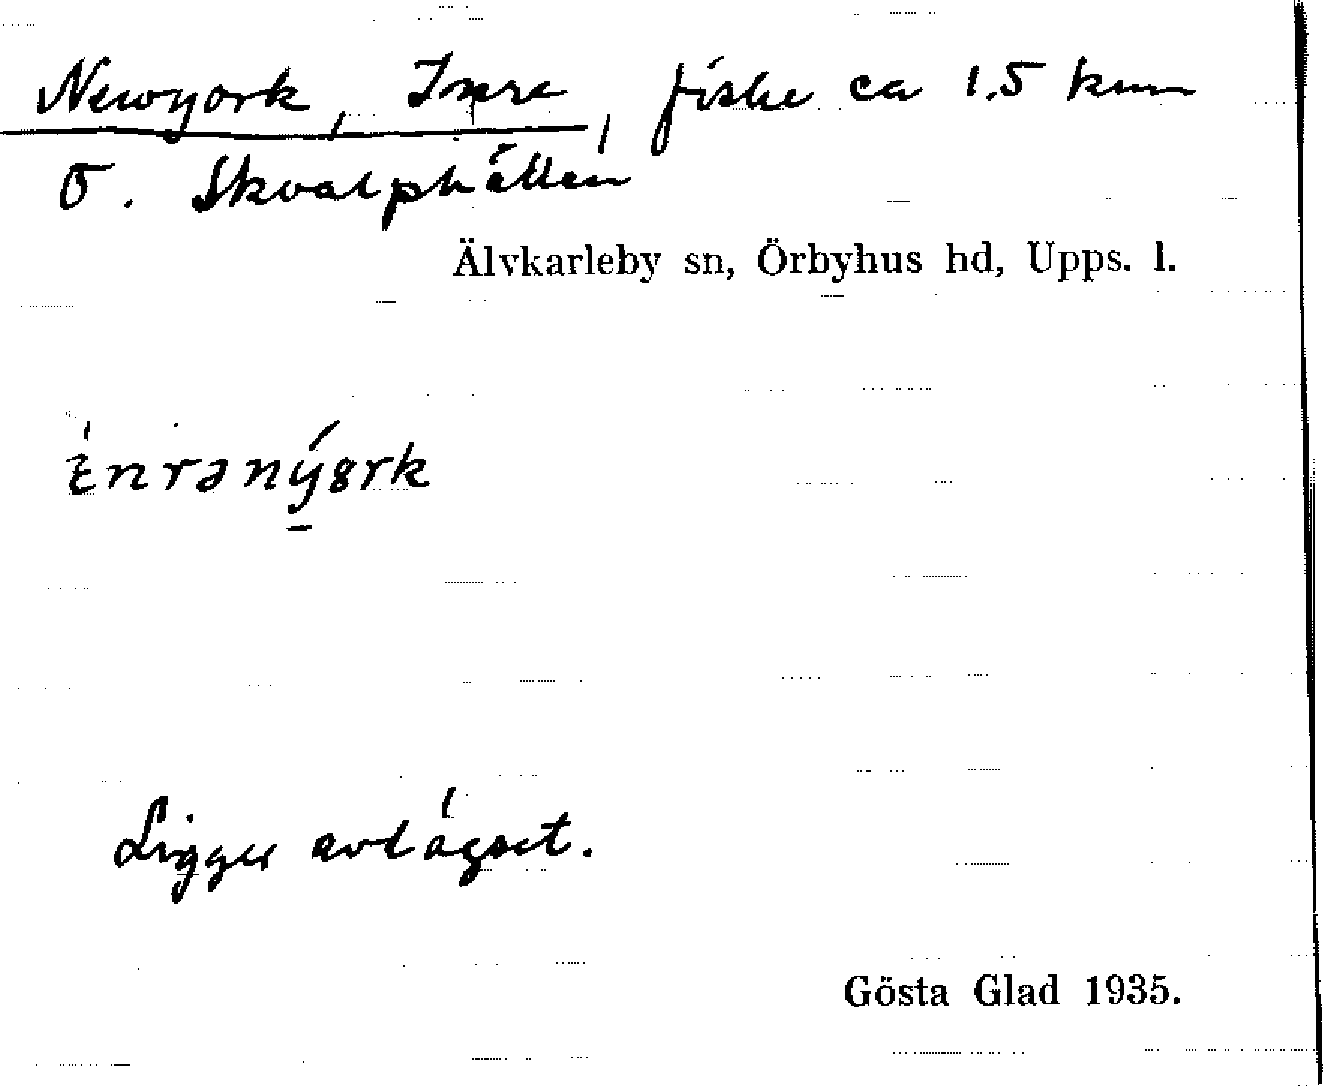 Newyork, Inre, fiske ca 1.5 km
O. Skvalphällen
Älvkarleby sn, Örbyhus hd, Upps. l.
ènranýɞrk
Ligger avlägset.
Gösta Glad 1935.